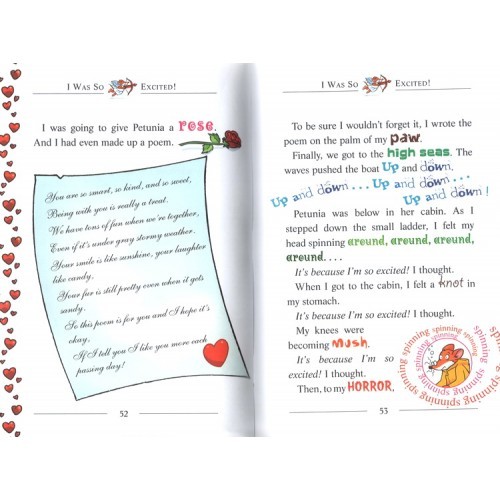 I Was So Excited!
I was going to give Petunia a rose.
And I had even made up a poem.
You are so smart, so kind, and so sweet,
Being with you is really a treat.
We have tons of fun when we're together,
Even if it's under gray stormy weather.
Your smile is like sunshine, your laughter
like candy.
Your fur is still pretty even when it gets
sandy.
So this poem is for you and I hope it's
okay.
If I tell you I like you more each
passing day!
52
I Was So Excited!
To be sure I wouldn't forget it, I wrote the
poem on the palm of my paw.
Finally, we got to the high seas. The
waves pushed the boat Up and down.
Up and down . . . Up and down . . .
Up and down!
Petunia was below in her cabin. As I
stepped down the small ladder, I felt my
head spinning around, around, around,
around. . . .
It's because I'm so excited! I thought.
When I got to the cabin, I felt a knot in
my stomach.
It's because I'm so excited! I thought.
My knees were
becoming mush.
It's because I'm so
excited! I thought.
Then, to my HORROR,
spinning spinning spinning spinning spinning spinning
53